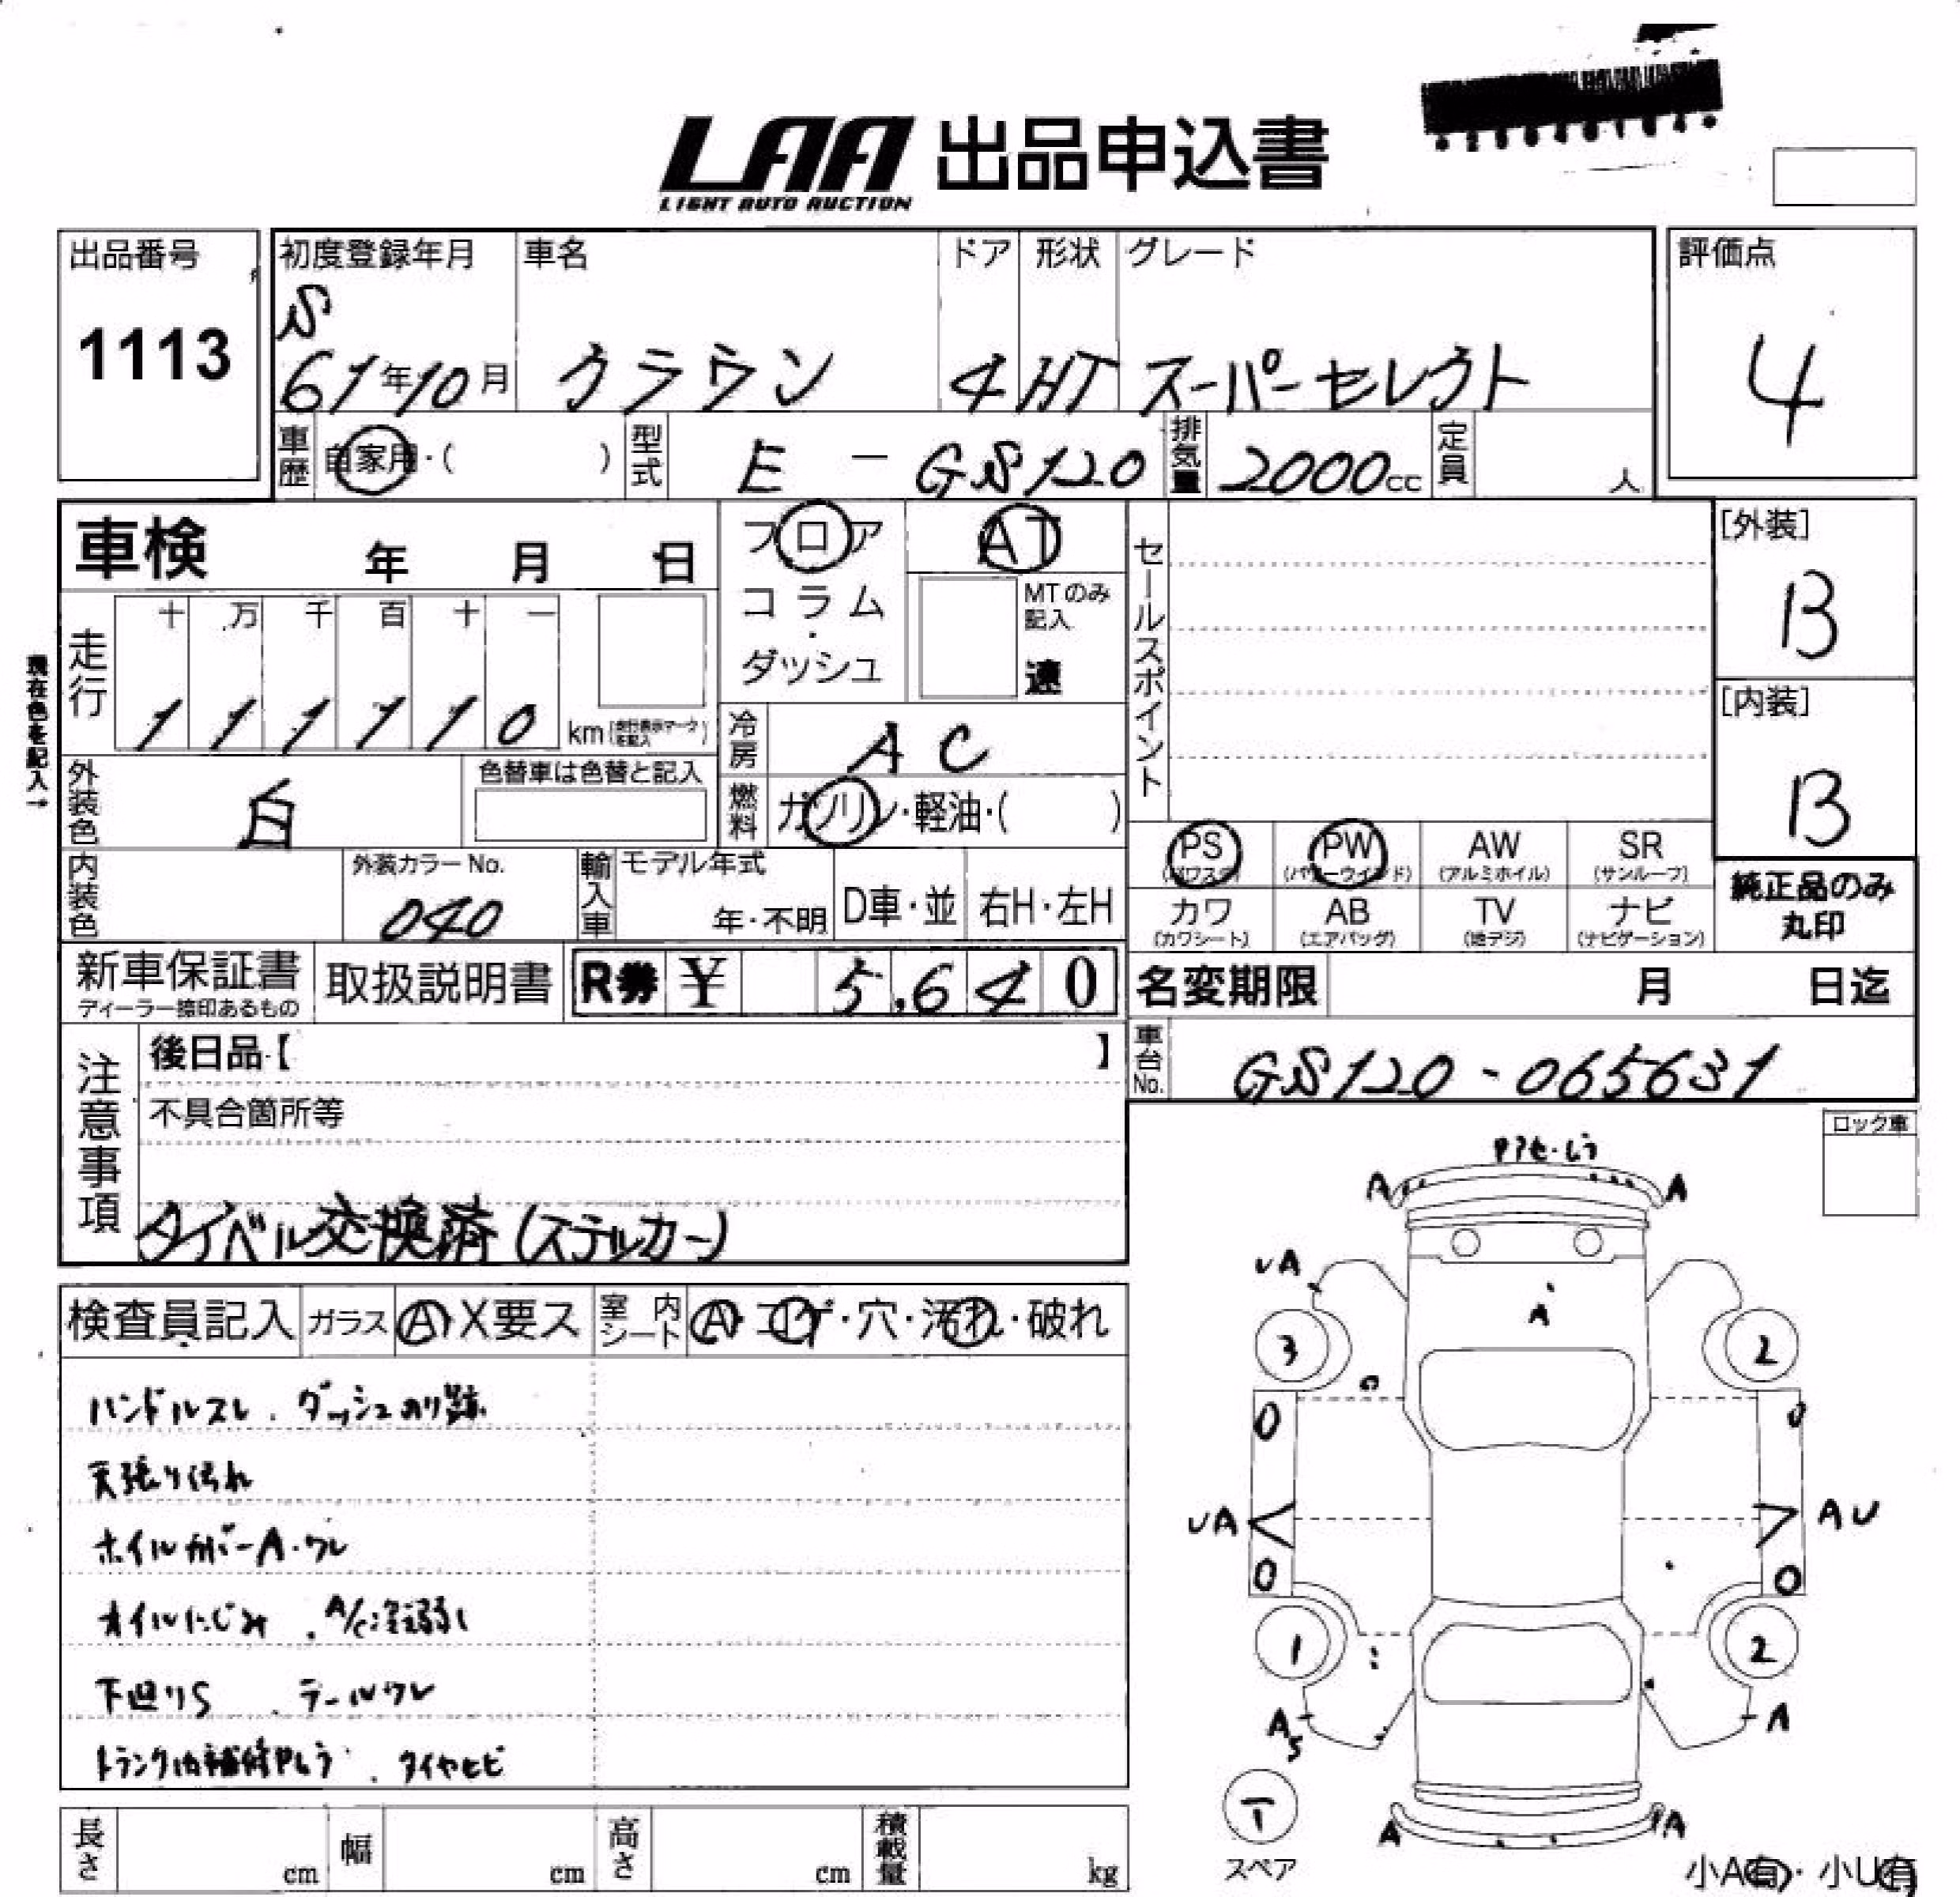 LAA 出品申込書
LIGHT AUTO AUCTION
出品番号
1113
初度登録年月
S
61年10月
車名
クラウン
ドア
4
形状
HT
グレード
スーパーセレクト
評価点
4
車歴 自家用・( )
型式 E-GS120
排気量 2000cc
定員 人
車検 年 月 日
フロア
コラム
・
ダッシュ
AT
MTのみ
記入
速
セールスポイント
[外装]
B
[内装]
B
現在色を記入→
走行
十 万 千 百 十 一
1 1 1 1 1 0 km
冷房 AC
燃料 ガソリン・軽油・( )
外装色 白
色替車は色替と記入
内装色
外装カラーNo.
040
輸入車
モデル年式
年・不明
D車・並
右H・左H
PS
PW
(パワーウインド)
AW
(アルミホイル)
SR
(サンルーフ)
カワ
(カワシート)
AB
(エアバッグ)
TV
(地デジ)
ナビ
(ナビゲーション)
純正品のみ
丸印
新車保証書
ディーラー捺印あるもの
取扱説明書
R券 ¥ 5,640
名変期限 月 日迄
車台No. GS120-065631
注意事項
後日品【 】
不具合箇所等
タイベル交換済(ステルカー)
ロック車
検査員記入
ガラス A・X要ス
室内シート A・コゲ・穴・汚れ・破れ
ハンドルスレ、ダッシュのり跡
天張り汚れ
ホイルカバーA・ワレ
オイルにじみ、A/C冷弱し
下廻りS、テールワレ
タイヤヒビ
A
A
UA
A
3
2
0
0
UA
AU
0
0
1
2
AS
A
T
スペア
A
A
小A有・小U有
長さ cm
幅 cm
高さ cm
積載量 kg